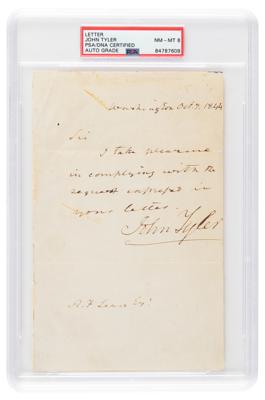 LETTER
JOHN TYLER
PSA/DNA CERTIFIED
AUTO GRADE
NM - MT 8
84787609
PSA
Washington Oct. 7. 1844
Sir
I take pleasure
in complying with the
request expressed in
your letter.
John Tyler
Esqr